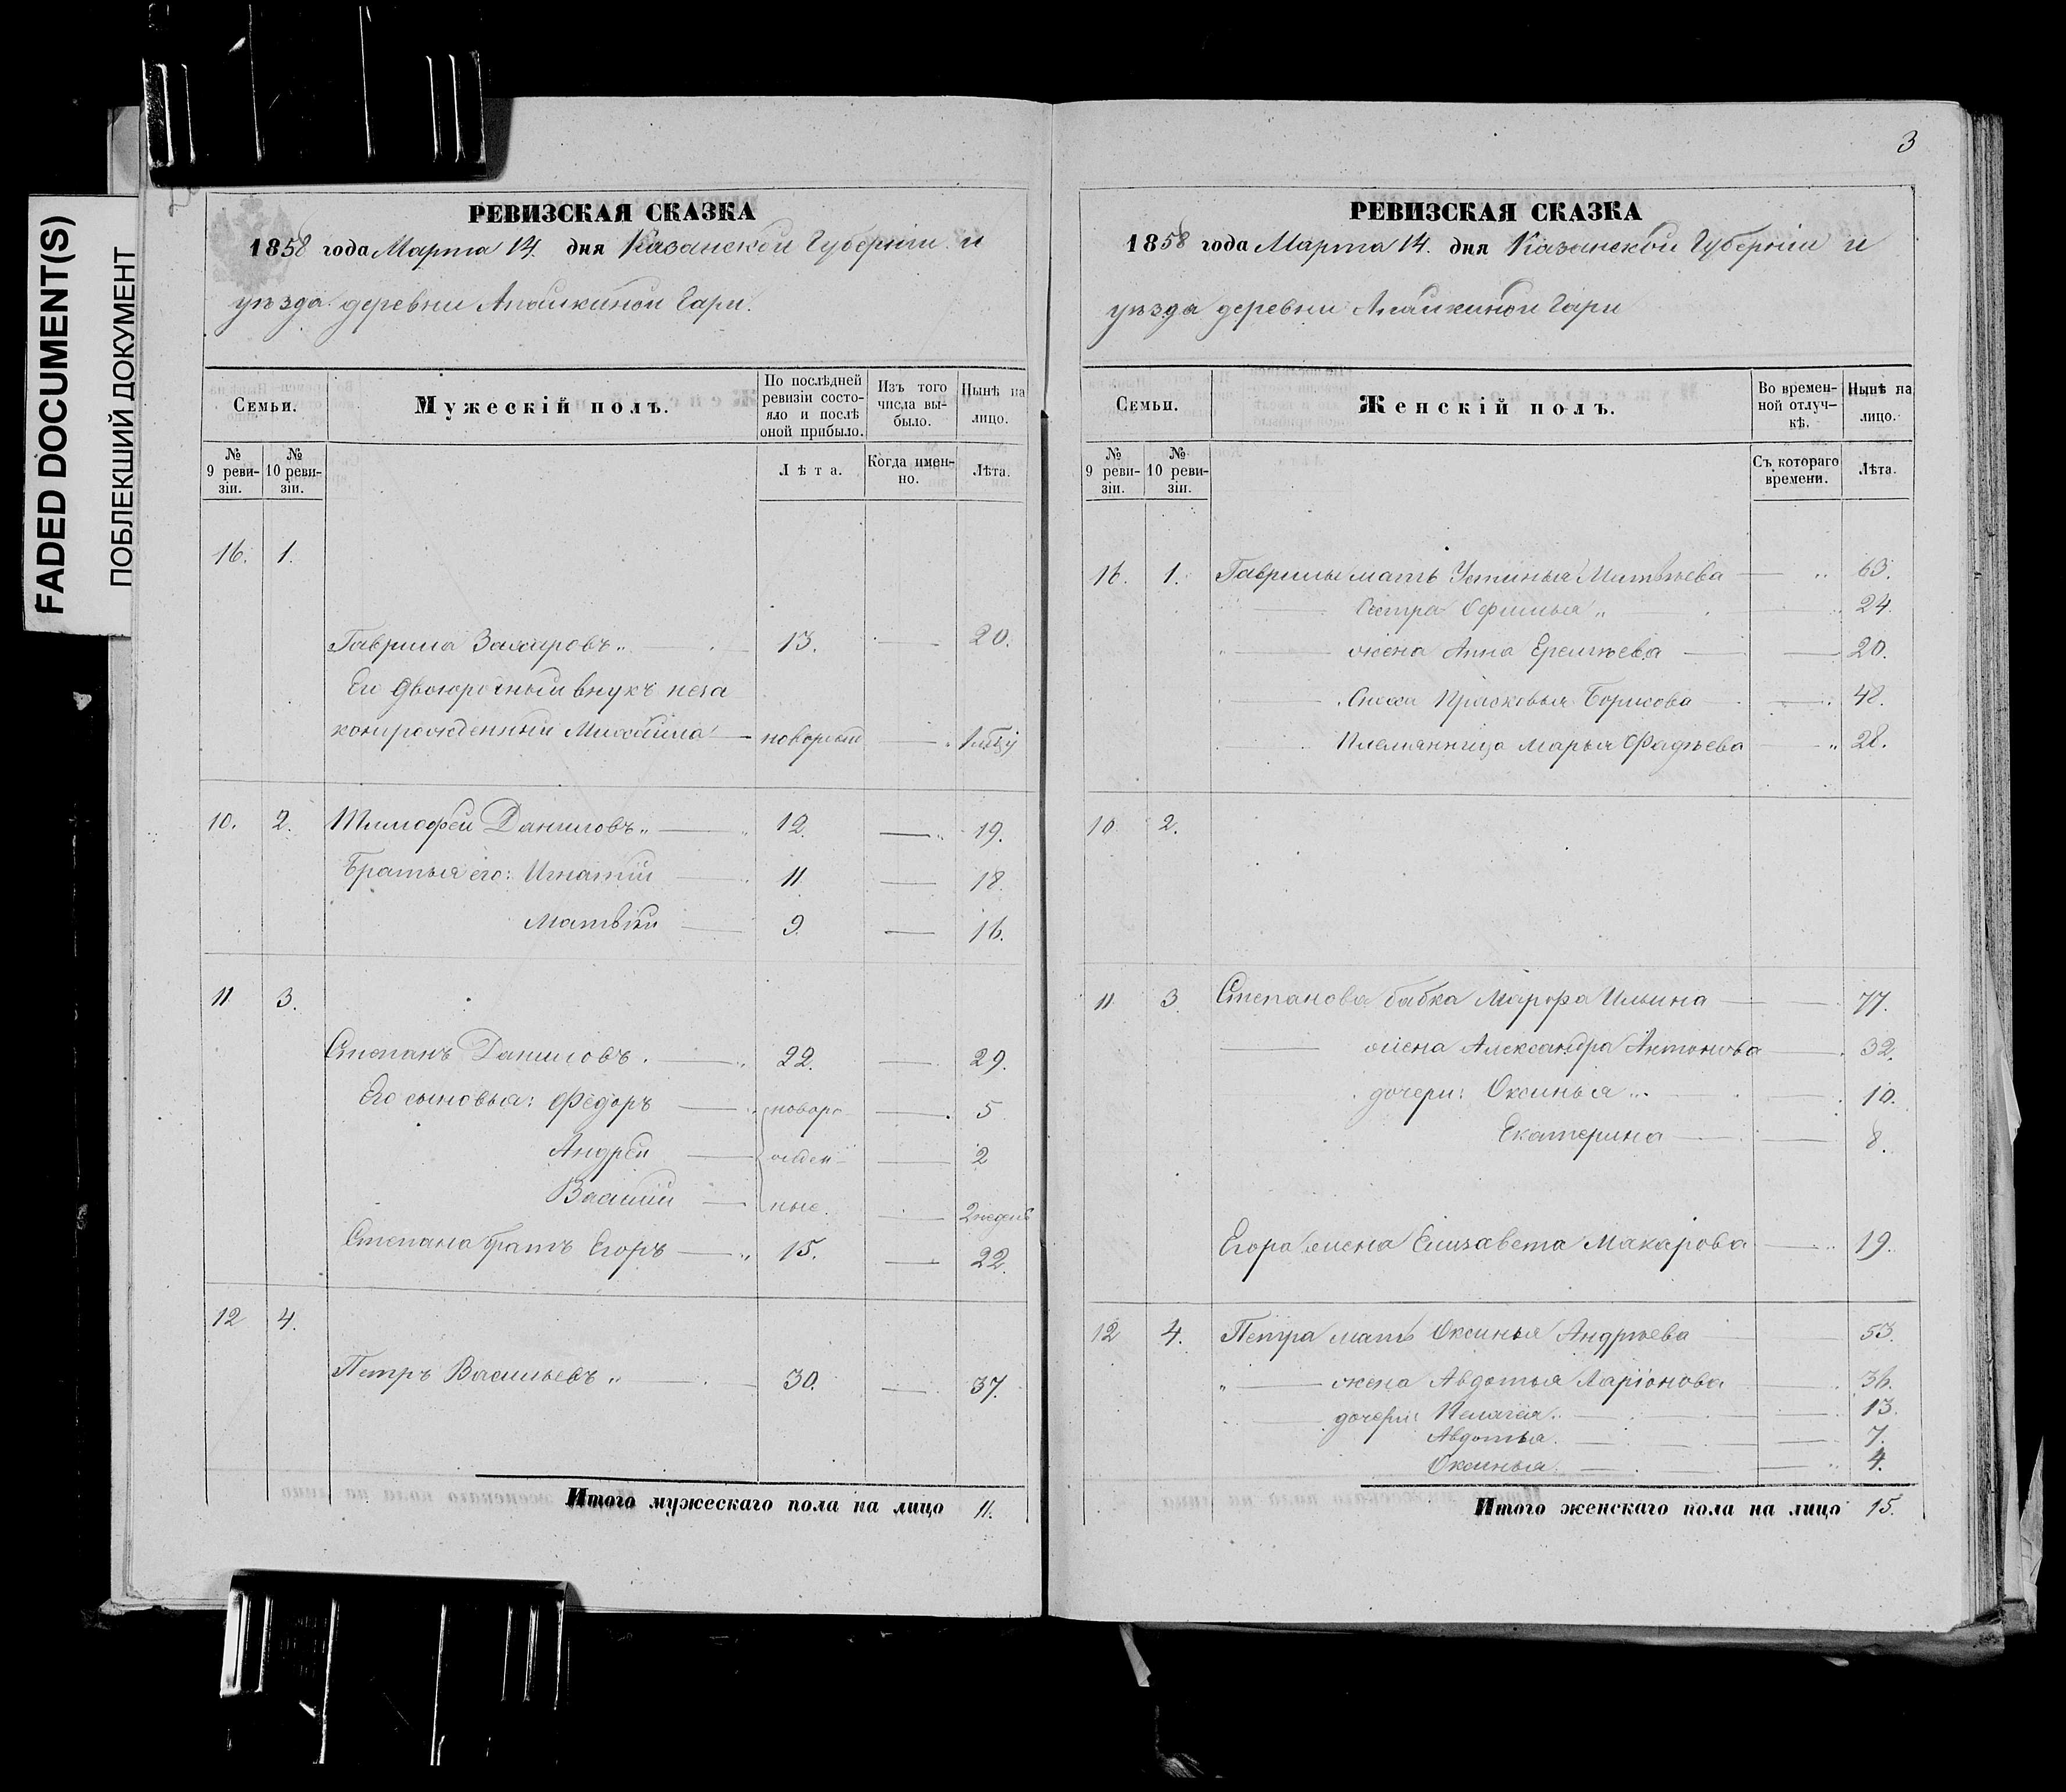 FADED DOCUMENT(S)
ПОБЛЕКШИЙ ДОКУМЕНТ
РЕВИЗСКАЯ СКАЗКА
1858 года Марта 14. дня Казанской Губерніи и
уѣзда деревни Апайкиной Гари.
Семьи.
Мужескій полъ.
По послѣдней ревизіи состояло и послѣ оной прибыло.
Изъ того числа выбыло.
Нынѣ на лицо.
№ 9 ревизіи.
№ 10 ревизіи.
Лѣта.
Когда именно.
Лѣта.
16. 1.
Гаврила Захаровъ „ 13. — 20.
Его двоюродный внукъ неза
коннорожденный Михайла — новорожд —
10. 2. Тимофей Даниловъ „ — 12. — 19.
Братья его: Игнатій — 11. — 18.
Матвѣй — 9. — 16.
11 3.
Степанъ Даниловъ. — 22. — 29.
Его сыновья: Федоръ — новоро — 5
Андрей — жден — 2
Василій — ные. — 2 недель
Степана братъ Егоръ — 15. — 22.
12 4.
Петръ Васильевъ „ — 30. — 37.
Итого мужескаго пола на лицо 11.
3
РЕВИЗСКАЯ СКАЗКА
1858 года Марта 14. дня Казанской Губерніи и
уѣзда деревни Апайкиной Гари
Семьи.
Женскій полъ.
Во временной отлучкѣ.
Нынѣ на лицо.
№ 9 ревизіи.
№ 10 ревизіи.
Съ котораго времени.
Лѣта.
16. 1. Гаврилы мать Устинья — 63.
— Сестра Офимья „ 24.
— жена Анна Еремѣева — 20.
— Сноха Прасковья Борисова — 48.
Племянница Марья Фадѣева — 28.
10 2.
11 3. Степанова бабка Марфа Ильина — 77.
— жена Александра Антонова — 32.
дочери: Оксинья „ 10.
Екатерина — 8.
Егора жена Елизавета Макарова — 19.
12 4. Петра мать Оксинья Андрѣева — 53.
„ — жена Авдотья Ларіонова — 36.
— дочери: Пелагея. — 13.
Авдотья. — 7.
Оксинья. — 4.
Итого женскаго пола на лицо 15.